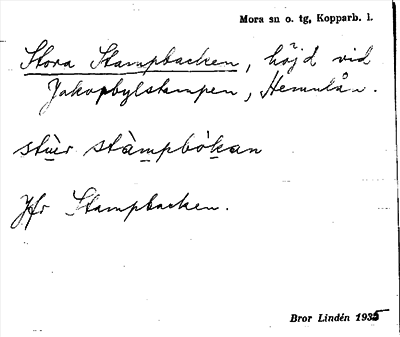 Mora sn o. tg, Kopparb. l.
Stora Stampbacken, höjd vid
Jakopbylstampen, Hemulån.
stùer stàmpbòkan
Jfr Stampbacken.
Bror Lindén 1935